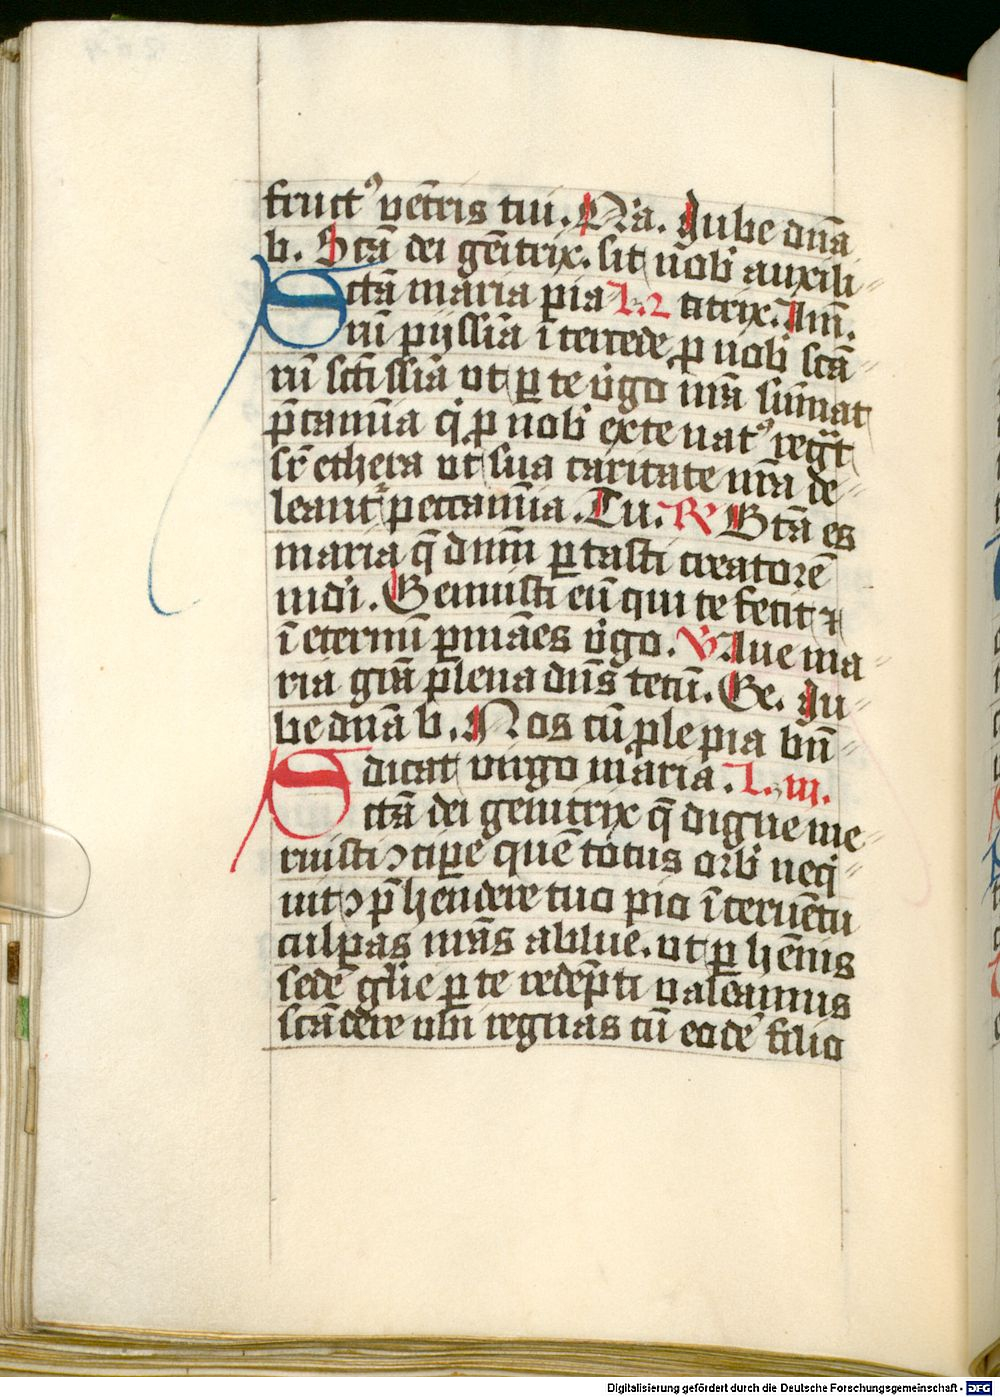 fructꝰ vet̄ris tui. Nr̄a. Iube dn̄a
b. Sctā dei gēitrix. sit nob̄ auxili
Sctā maria pia L. 2 atrix. Am̄.
rū pijssīa īterrede ꝓ nob̄ sctā
rū scti̅ssīa vt ꝑ te v̄go nr̄a sūmat
p̄camīa q̄ ꝓ nob̄ ex te natꝰ reḡt
sr̄ ethera vt sua caritate nr̄a de
leant̄ peccamīa. Tu. R Btā es
maria q̄ dn̄m ꝑtasti creatorē
mdi̅. Genuisti eū qui te fecit ⁊
ī eternū ꝑmāes v̄go. V Aue ma
ria grā plena dn̄s tecū. Ge. Iu
be dn̄a b. Nos cū ꝓle pia bn̄
dicat virgo maria. L. iii.
Sctā dei genitrix q̄ digne me
ruisti ꝯcipe̅ quē totus orb̄ neq̄
uit ꝯp̄hendere tuo pio īteruētu
culpas nr̄as ablue. vt ꝑhēnis
sedē glīe ꝑ te redēpti valeamus
scādere vbi regnas cū eodē filio
Digitalisierung gefördert durch die Deutsche Forschungsgemeinschaft - DFG